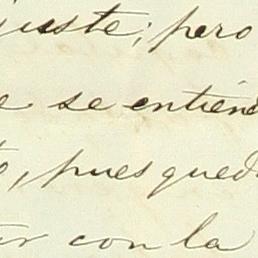 juste; pero
e se entiend
o, pues qued
ar con la